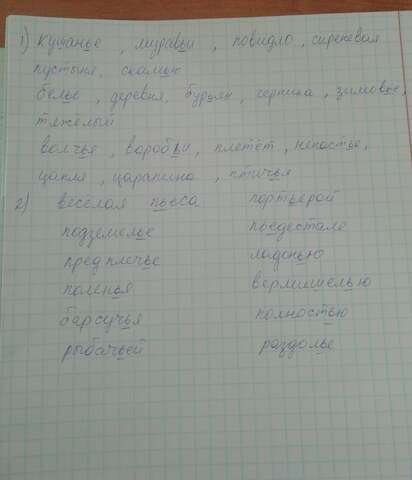 1) Кушанье, муравьи, повидло, сиреневая
пустыня, скамью
белье, деревня, бурьян, черника, зимовье,
тяжелый
волчья, воробьи, плетёт, ненастье,
цапля, царапина, птичья
2) весёлая пьеса портьерой
подземелье пьедестале
предплечье ладонью
поленья вермишелью
барсучья полностью
рыбачьей раздолье